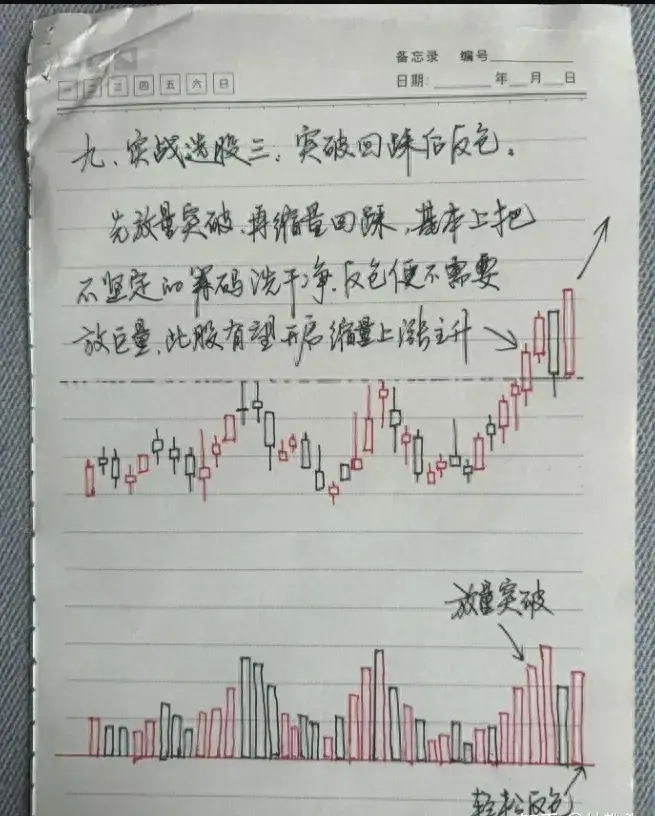 备忘录 编号
一 二 三 四 五 六 日
日期: 年 月 日
九、实战选股三、突破回踩后反包。
先放量突破,再缩量回踩,基本上把
不坚定的筹码洗干净,反包便不需要
放巨量,此股有望开启缩量上涨主升
放量突破
轻松反包